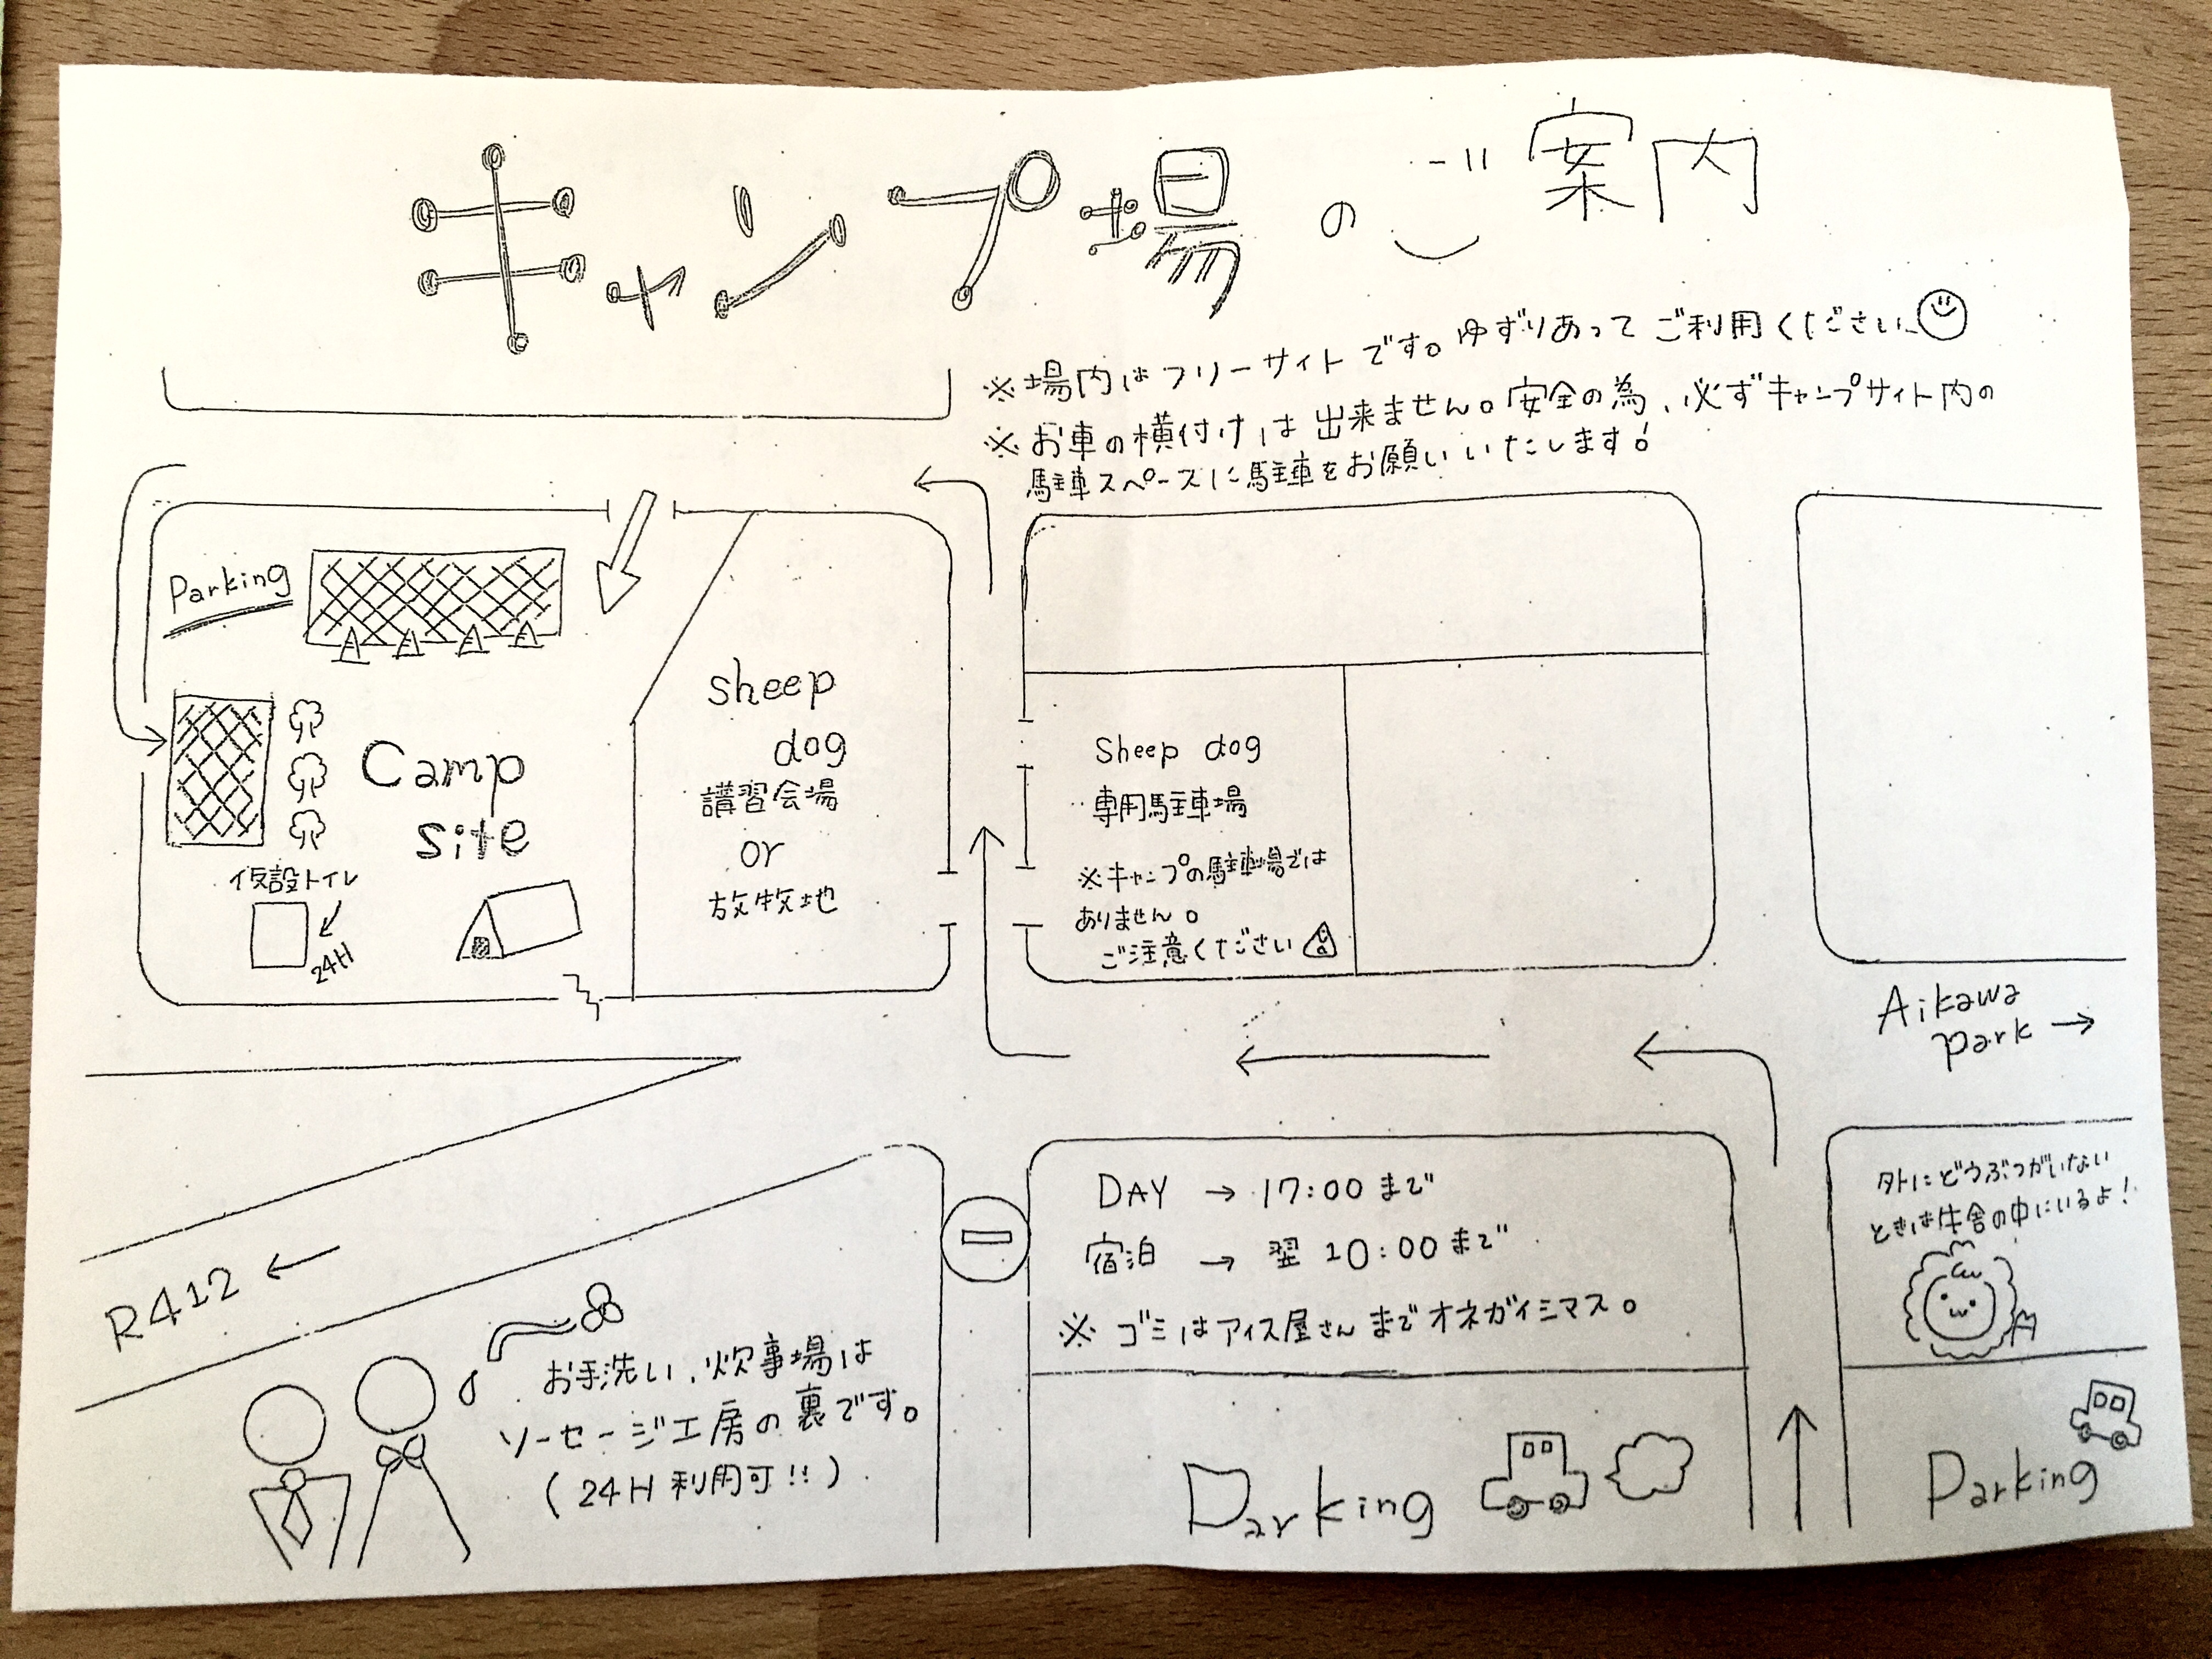 キャンプ場のご案内
※場内はフリーサイトです。ゆずりあってご利用ください
※お車の横付けは出来ません。安全の為、必ずキャンプサイト内の
駐車スペースに駐車をお願いいたします!
Parking
Camp
site
仮設トイレ
24H
sheep
dog
講習会場
or
放牧地
Sheep dog
専用駐車場
※キャンプの駐車場では
ありません。
ご注意ください
Aikawa
park →
R412 ←
DAY → 17:00 まで
宿泊 → 翌 10:00 まで
※ ゴミはアイス屋さんまでオネガイシマス。
外にどうぶつがいない
ときは牛舎の中にいるよ!
お手洗い、炊事場は
ソーセージ工房の裏です。
(24H 利用可!!)
Parking
Parking